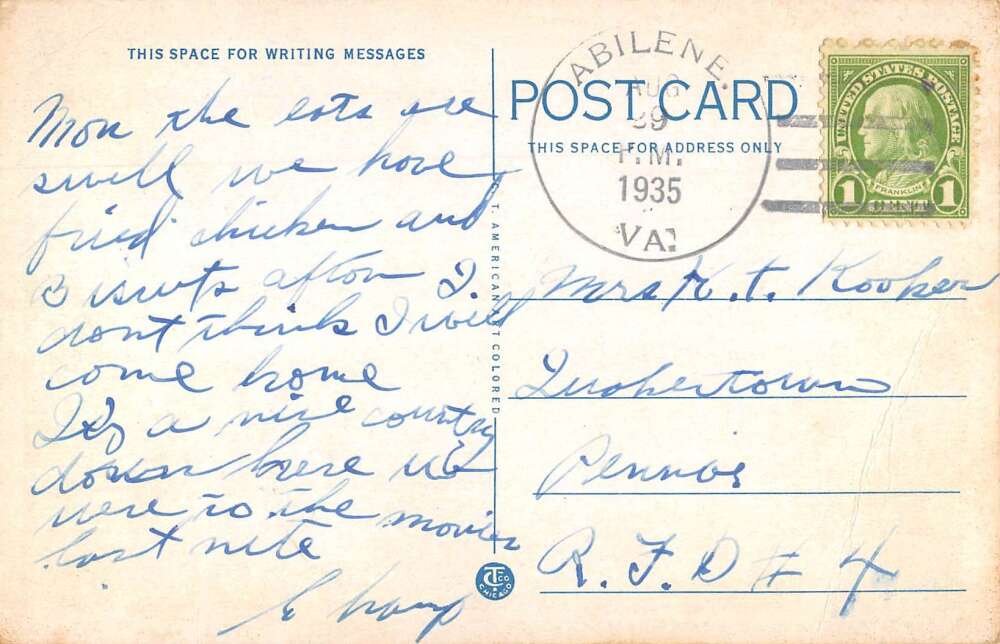 THIS SPACE FOR WRITING MESSAGES
Mon the eats are
swell we have
fried chicken and
Biscuts often I
dont think I will
come home
Its a nice country
down here we
were to the movies
last nite
C. T. AMERICAN ART COLORED
CT CO CHICAGO
POST CARD
THIS SPACE FOR ADDRESS ONLY
ABILENE,
AUG
29
P.M.
1935
VA.
UNITED STATES POSTAGE
FRANKLIN
1 CENT 1
Mrs K. T. Kooker
Quakertown
Penna
R. F. D # 4